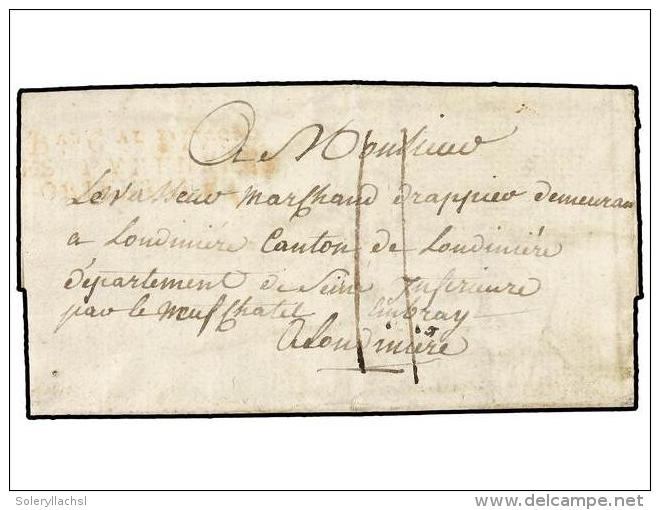 A Monsieur
Levasseur marchand drappier demeuran
a Londiniére Canton de Londiniére
département de Seine Inferieure
par le Neufchatel enbray
A Londiniére
Soleryllachsl
delcampe.net